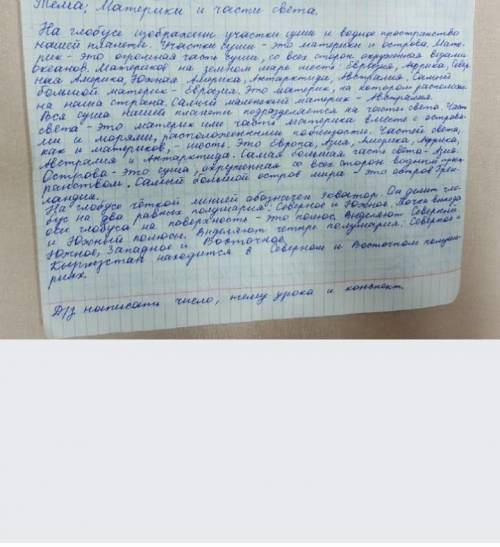 Тема: Материки и части света.
На глобусе изображены участки суши и водное пространство
нашей планеты. Участки суши - это материки и острова. Мате-
рик - это огромная часть суши, со всех сторон окружённая водами
океанов. Материков на земном шаре шесть: Евразия, Африка, Север-
ная Америка, Южная Америка, Антарктида, Австралия. Самый
большой материк - Евразия. Это материк, на котором расположе-
на наша страна. Самый маленький материк - Австралия.
Вся суша нашей планеты подразделяется на части света. Часть
света - это материк или часть материка вместе с острова-
ми и морями, расположенными поблизости. Частей света,
как и материков, - шесть. Это Европа, Азия, Америка, Африка,
Австралия и Антарктида. Самая большая часть света - Азия.
Острова - это суша, окружённая со всех сторон водным прост-
ранством. Самый большой остров мира - это остров Грен-
ландия.
На глобусе чёткой линией обозначен экватор. Он делит гло-
бус на два равных полушария: Северное и Южное. Точки выхода
оси глобуса на поверхность - это полюс. Выделяют Северный
и Южный полюсы. Выделяют четыре полушария: Северное и
Южное, Западное и Восточное.
Кыргызстан находится в Северном и Восточном полуша-
риях.
Д/з написать число, тему урока и конспект.